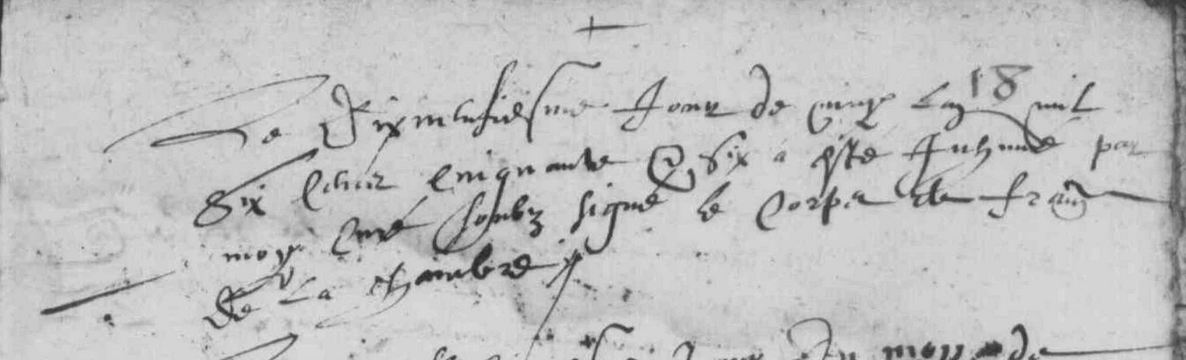 +
18
Le dixneufiesme Jour de may Lan mil
Six Cens Cinquante & Six a este Inhumé par
moy Curé soubz signé le Corps de Fran
de La chambre
Jour du mois de